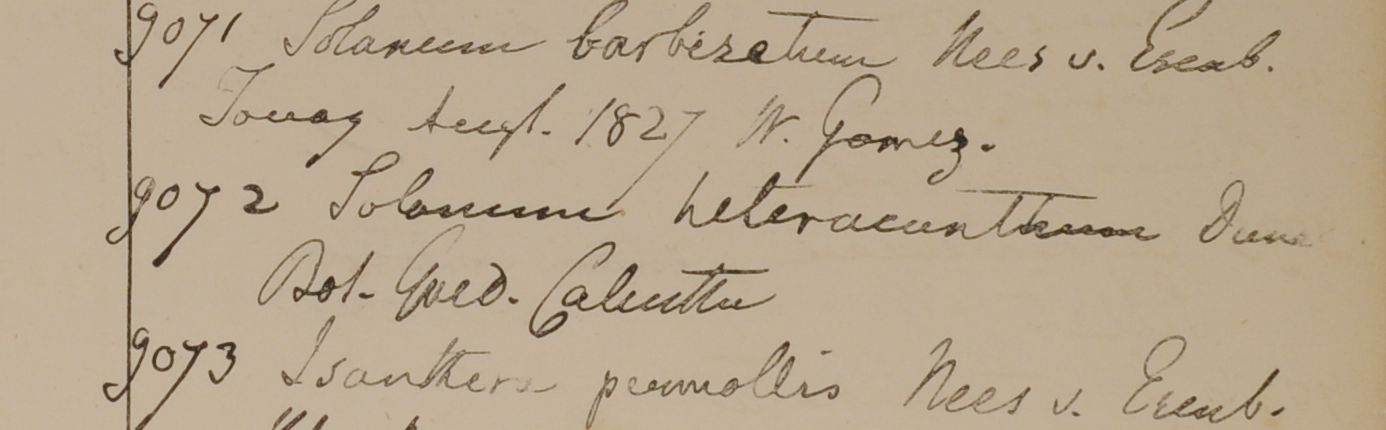 9071 Solanum barbisetum Nees v. Esenb.
Tavoy Augt. 1827 W. Gomez.
9072 Solanum heteracanthum Duna
Bot. Gard. Calcutta
9073 Isanthera permollis Nees v. Esenb.